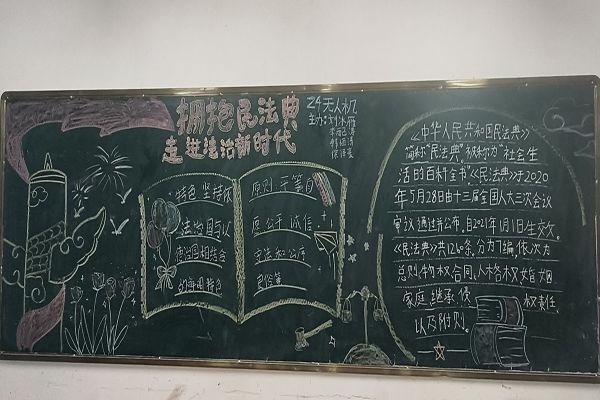 拥抱民法典
走进法治新时代
24无人机
特色 坚持依
法治国与以
德治国相结合
的鲜明特色
原则 平等自
愿 公平 诚信
守法和公序
良俗等
《中华人民共和国民法典》
简称"民法典"被称为"社会生
活的百科全书"《民法典》于2020
年5月28日由十三届全国人大三次会议
审议通过并公布,自2021年1月1日生效
《民法典》共1260条,分为7编,依次为
总则,物权,合同,人格权,婚姻
家庭,继承,侵权责任
以及附则。